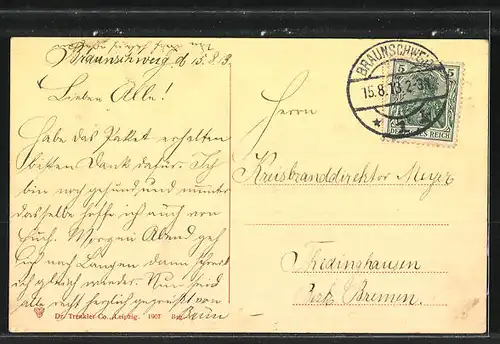 Braunschweig d. 15.8.13.
Lieben Alle!
Habe das Paket erhalten
besten Dank dafür. Ich
bin noch gesund und munter
dasselbe hoffe ich auch von
Euch. Morgen Abend geh
ich nach Langen dann schreib
ich gleich wieder. Nun seid
alle recht herzlich gegrüsst von
BRAUNSCHWEIG
15.8.13.2-3N.
5 5
DEUTSCHES REICH
Herrn
Kreisbranddirektor Meyer
Thedinghausen
Bez. Bremen.
Dr. Trenkler Co., Leipzig. 1907